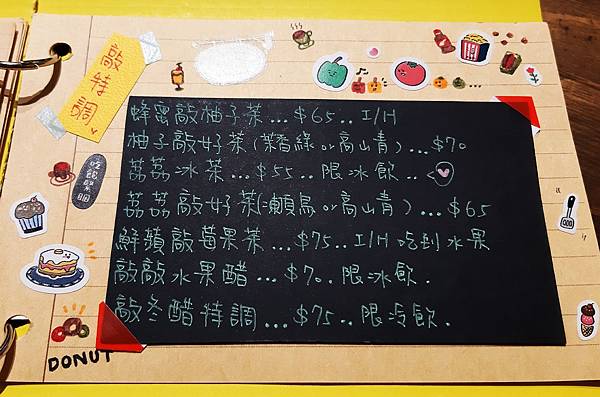 敲特調
蜂蜜敲柚子茶...$65..I/H
柚子敲好茶(茉香綠or高山青)...$70
荔荔冰茶...$55..限冰飲..<
荔荔敲好茶(瀨烏or高山青)...$65
鮮蘋敲莓果茶...$75..I/H 吃到水果
敲敲水果醋...$70..限冰飲.
敲冬醋特調...$75..限冷飲.
DONUT